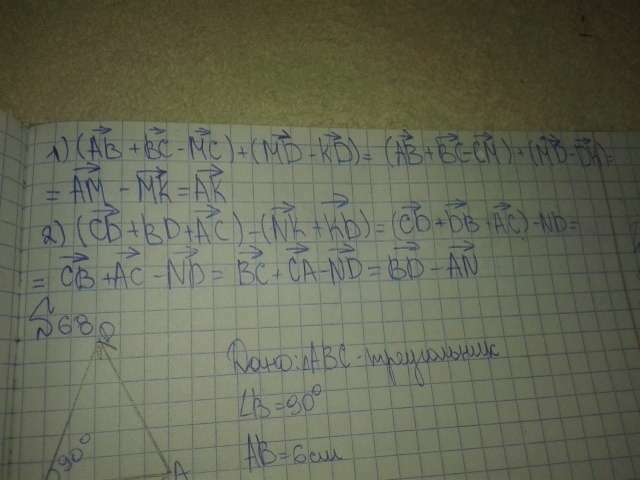 1) (AB + BC - MC) + (MD - KD) = (AB + BC - CM) + (MD - DK) =
= AM - MK = AK
2) (CD + BD + AC) - (NK + KD) = (CD + DB + AC) - ND =
= CB + AC - ND = BC + CA - ND = BD - AN
568
B
90°
A
Дано: ABC - треугольник
∠B = 90°
AB = 6 см